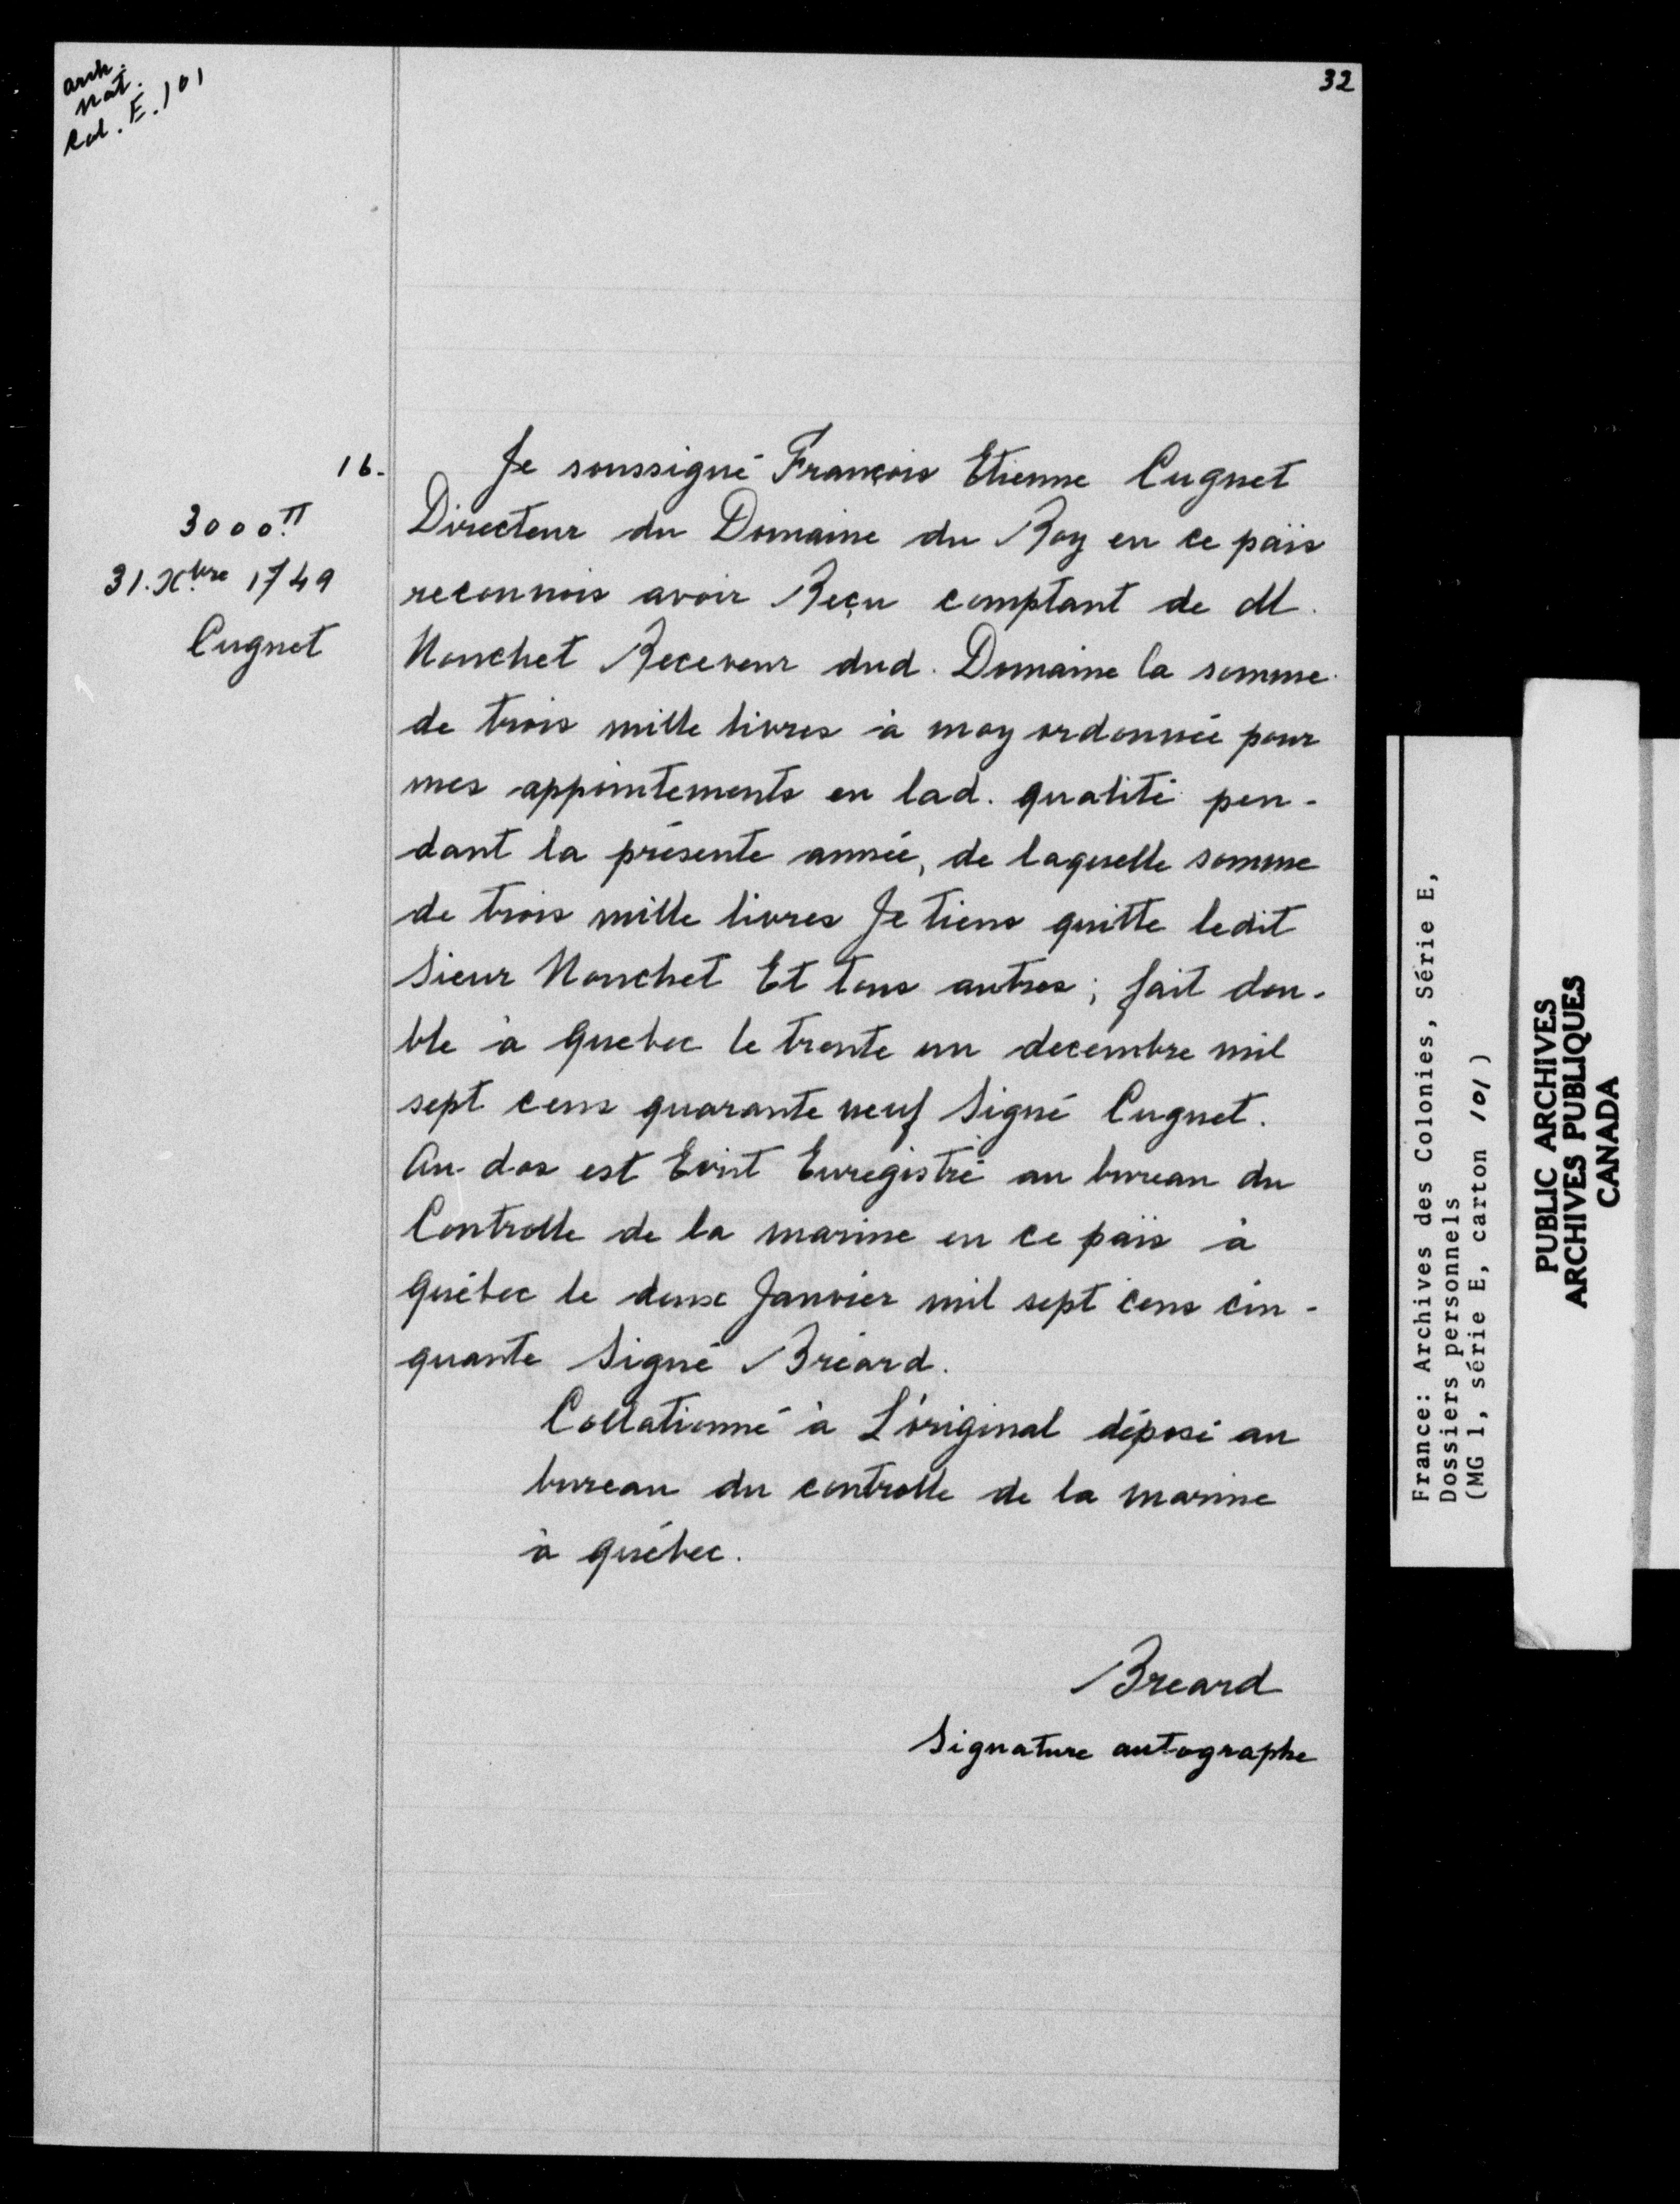 arch.
nat.
Col. E. 101
32
16.
3000.tt
31. Xbre 1749
Cugnet
Je soussigné François Etienne Cugnet
Directeur du Domaine du Roy en ce païs
reconnois avoir Reçu comptant de M.
Nouchet Receveur dud. Domaine la somme
de trois mille livres à moy ordonnée pour
mes appointements en lad. qualité pen-
dant la présente année, de laquelle somme
de trois mille livres Je tiens quitte ledit
Sieur Nouchet Et tous autres; fait dou-
ble à Quebec le trente un decembre mil
sept cens quarante neuf Signé Cugnet.
Au dos est Ecrit Enregistré au bureau du
Controlle de la marine en ce païs à
Québec le deux Janvier mil sept cens cin-
quante Signé Bréard.
Collationné à L'original déposé au
bureau du controlle de la marine
à québec.
Breard
Signature autographe
France: Archives des Colonies, Série E,
Dossiers personnels
(MG 1, série E, carton 101)
PUBLIC ARCHIVES
ARCHIVES PUBLIQUES
CANADA